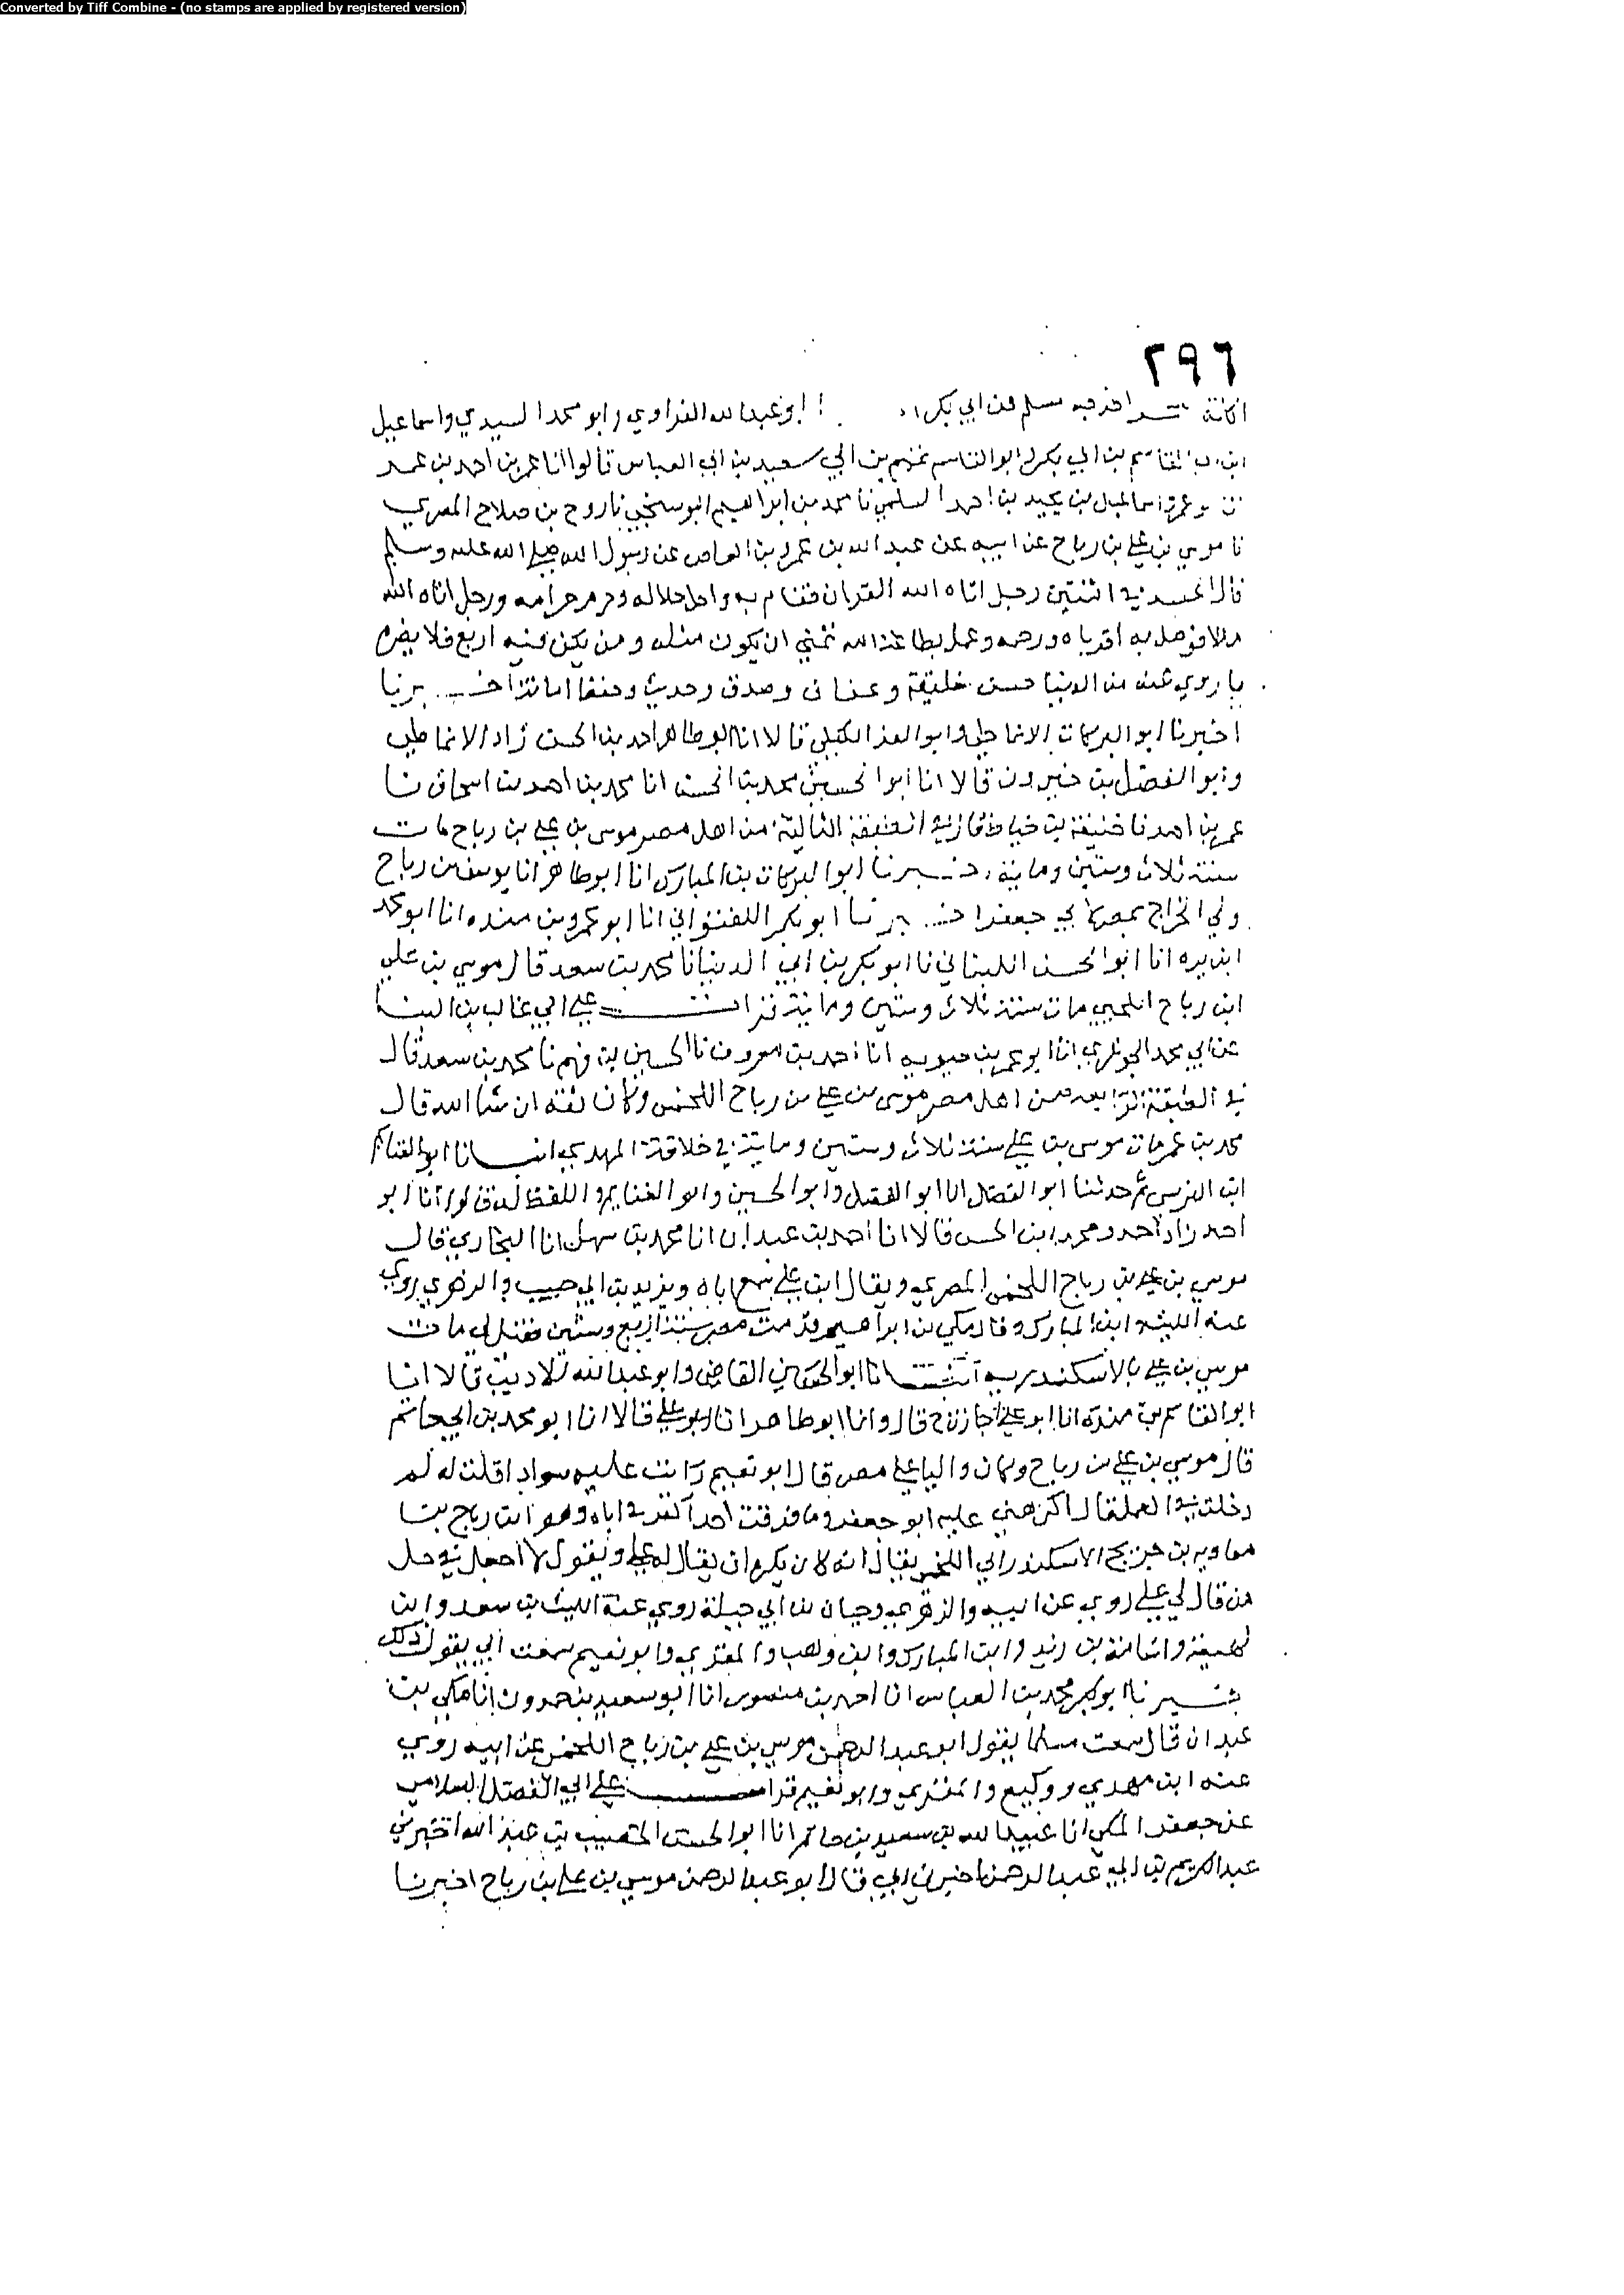 Converted by Tiff Combine - (no stamps are applied by registered version)
٢٩٦
اخرجه مسلم عن ابي بكر ابو عبدالله الفراوي وابو محمد السيدي واسماعيل
ابن ابي القاسم بن ابي بكر وابو القاسم تميم بن ابي سعيد بن ابي العباس قالوا انا عمر بن احمد بن عمر
ابو عمرو اسماعيل بن نجيد بن احمد السلمي نا محمد بن ابراهيم البوسنجي نا روح بن صلاح المصري
نا موسي بن علي بن رباح عن ابيه عن عبد الله بن عمرو بن العاص عن رسول الله صلى الله عليه وسلم
قال الحسد في اثنتين رجل اتاه الله القران فقام به واحل حلاله وحرم حرامه ورجل اتاه الله
مالا فوصل به اقرباه ورحمه وعمل بطاعة الله تمني ان يكون مثله ومن يكن فيه اربع فلا يضره
ما زوي عنه من الدنيا حسن خليقة وعفاف وصدق وحديث وحفظ امانة اخبرنا
اخبرنا ابو البركات الانماطي وابو العز الكيلي قالا انا ابو طاهر احمد بن الحسن زاد الانماطي
وابو الفضل بن خيرون قالا انا ابو الحسين محمد بن الحسن انا محمد بن احمد بن اسحاق نا
عمر بن احمد نا خليفة بن خياط قال في الطبقة الثالثة من اهل مصر موسى بن علي بن رباح مات
سنة ثلاث وستين وماية اخبرنا ابو البركات بن المبارك انا ابو طاهر انا يوسف بن رباح
ولي الخراج بمصر لابي جعفر اخبرنا ابو بكر اللفتواني انا ابو عمرو بن منده انا ابو محمد
ابن يوه انا ابو الحسن اللبناني نا ابو بكر بن ابي الدنيا نا محمد بن سعد قال موسي بن علي
ابن رباح اللخمي مات سنة ثلاث وستين وماية قرات علي ابي غالب بن البنا
عن ابي محمد الجوهري انا ابو عمر بن حيويه انا احمد بن معروف نا الحسين بن فهم نا محمد بن سعد قال
في الطبقة الرابعة من اهل مصر موسى بن علي بن رباح اللخمي وكان ثقة ان شا الله قال
محمد بن عمر مات موسى بن علي سنة ثلاث وستين وماية في خلافة المهدي انبانا ابو الغنايم
ابن النرسي ثم حدثنا ابو الفضل انا ابو الفضل وابو الحسين وابو الغنايم واللفظ له قالوا انا ابو
احمد زاد احمد ومحمد بن الحسن قالا انا احمد بن عبدان انا محمد بن سهل انا البخاري قال
موسي بن علي بن رباح اللخمي المصري ويقال ابن علي سمع اباه ويزيد بن ابي حبيب والزهري روي
عنه الليث وابن المبارك وقال مكي بن ابراهيم قدمت مصر سنة اربع وستين فقيل لي مات
موسي بن علي بالاسكندرية انبانا ابو الحسين القاضي وابو عبد الله الاديب قالا انا
ابو القاسم بن منده انا ابو علي اجازة ح قال وانا ابو طاهر انا ابو علي قالا انا ابو محمد بن ابي حاتم
قال موسي بن علي بن رباح وكان واليا علي مصر قال ابو نعيم رايت عليه سوادا قلت له لم
دخلت في العمل قال اكرهني عليه ابو جعفر وما فرقت احدا كفرقي اياه وهو ابن رباح بن
معاويه بن حديج الاسكندراني اللخمي يقال انه كان يكره ان يقال له علي ويقول لا اجعل في حل
من قال لي علي روي عن ابيه والزهري وحبان بن ابي جبلة روي عنه الليث بن سعد وابن
لهيعة واسامة بن زيد وابن المبارك وابن وهب والمقري وابو نعيم سمعت ابي يقول ذلك
اخبرنا ابو بكر محمد بن العباس انا احمد بن منصور انا ابو سعيد بن حمدون انا مكي بن
عبدان قال سمعت مسلما يقول ابو عبد الرحمن موسي بن علي بن رباح اللخمي عن ابيه روي
عنه ابن مهدي ووكيع والمقري وابو نعيم قرات علي ابي الفضل السلامي
عن جعفر المكي انا عبيد الله بن سعيد بن حاتم انا ابو الحسن الخصيب بن عبد الله اخبرني
عبد الكريم بن ابي عبد الرحمن اخبرني ابي قال ابو عبد الرحمن موسي بن علي بن رباح اخبرنا